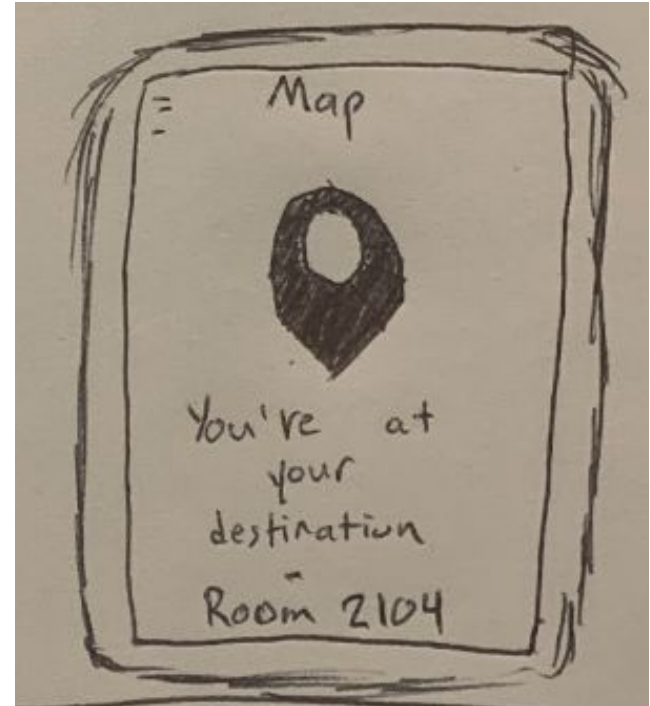 Map
You're at
your
destination
-
Room 2104